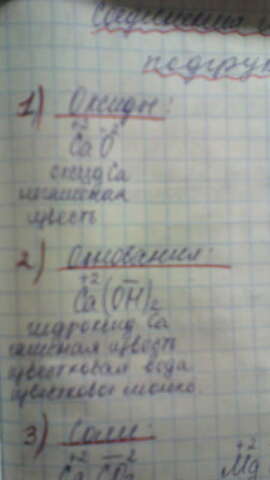 Соединения
подгруп
1) Оксиды:
+2 -2
CaO
оксид Ca
негашеная
известь
2) Основания:
+2 -
Ca(OH)2
гидроксид Ca
гашеная известь
известковая вода
известковое молоко.
3) Соли:
+2 -2
Ca CO3
+2
Mg